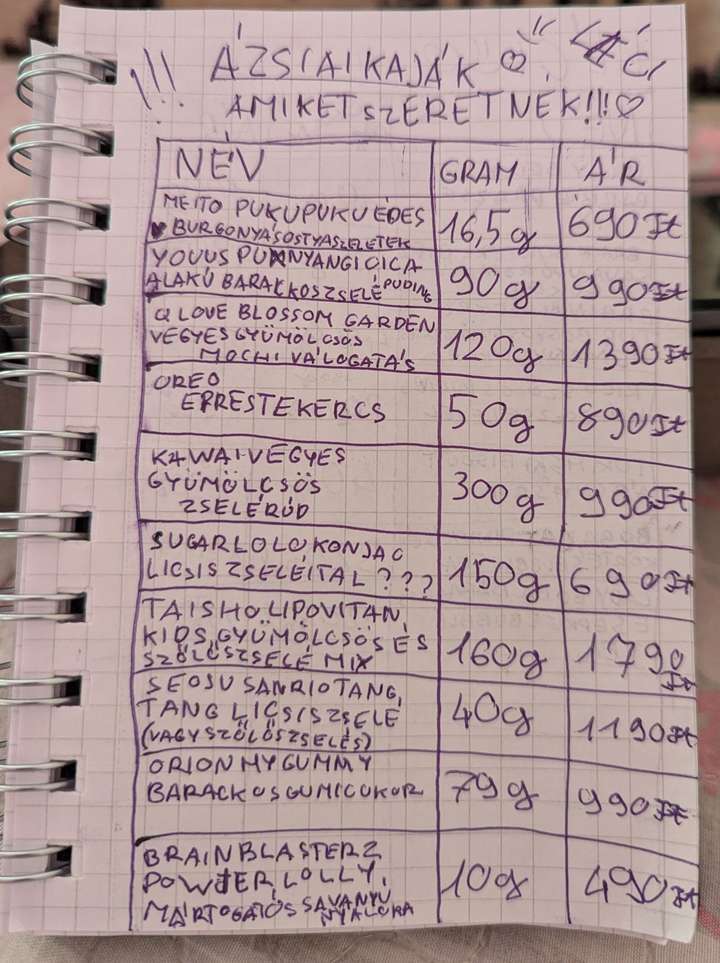 !!! ÁZSIAI KAJÁK
AMIKET SZERETNÉK!!!♡
NÉV GRAM ÁR
MEITO PUKUPUKU ÉDES
BURGONYÁS OSTYASZELETEK 16,5g 690 Ft
NYANGI CICA
ALAKÚ BARACKOS ZSELÉ PUDING 90g 990 Ft
Q LOVE BLOSSOM GARDEN
VEGYES GYÜMÖLCSÖS
MOCHI VÁLOGATÁS 120g 1390 Ft
OREO
EPRES TEKERCS 50g 890 Ft
KAWAI VEGYES
GYÜMÖLCSÖS
ZSELÉRÚD 300g 990 Ft
SUGARLOLO KONJAC
LICSIS ZSELÉITAL??? 150g 690 Ft
TAISHO LIPOVITAN,
KIDS, GYÜMÖLCSÖS ÉS
SZŐLŐSZSELÉ MIX 160g 1790 Ft
SEOSU SANRIO TANG,
TANG LICSIS ZSELÉ
(VAGY SZŐLŐS ZSELÉS) 40g 1190 Ft
ORION MY GUMMY
BARACKOS GUMICUKOR 79g 990 Ft
BRAIN BLASTERZ
POWDER LOLLY,
MÁRTOGATÓS SAVANYÚ
NYALÓKA 10g 490 Ft